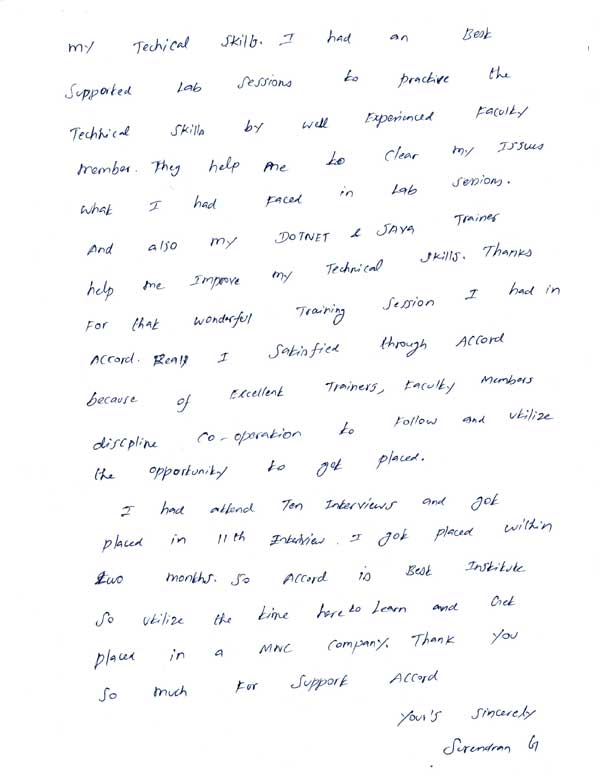 my Techical Skills. I had an Best
Supported Lab Sessions to practive the
Techhical Skills by well Experienced Faculty
Member. They help me to Clear my Issues
what I had Faced in Lab sessions.
And also my DOTNET & JAVA Trainer
help me Improve my Technical skills. Thanks
For that wonderful Training Session I had in
Accord. Really I Satisfied through Accord
because of Excellent Trainers, Faculty Members
discpline Co-operation to Follow and utilize
the opportunity to get placed.
I had attend Ten Interviews and got
placed in 11th Interview. I got placed within
two months. So Accord is Best Institute
So utilize the time here to Learn and Get
placed in a MNC Company. Thank you
So much For Support Accord
Your's Sincerely
Surendran G